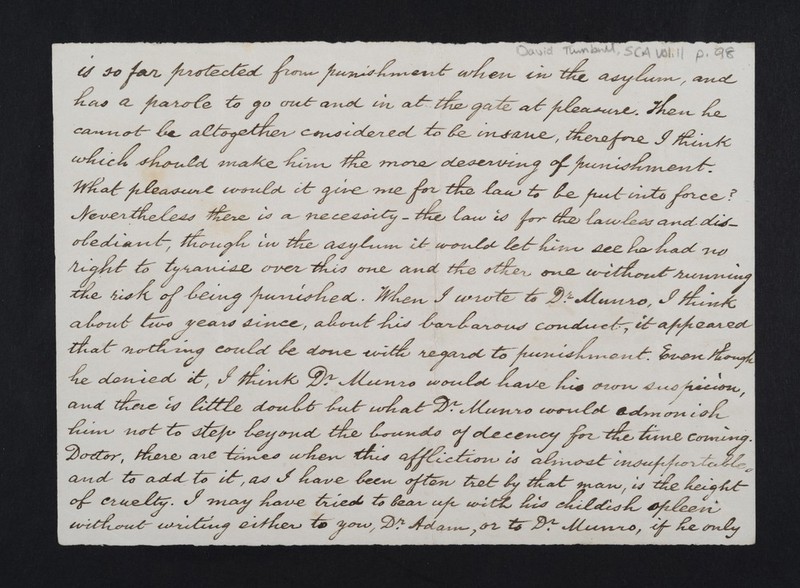 David Turnbull, SCA Vol.11 p. 98
is so far protected from punishment when in the asylum, and
has a parole to go out and in at the gate at pleasure. Then he
cannot be altogether considered to be insane, therefore I think
which should make him the more deserving of punishment.
What pleasure would it give me for the law to be put into force?
Nevertheless there is a necessity - the law is for the lawless and dis-
obediant, though in the asylum it would let him see he had no
right to tyranise over this one and the other one without running
the risk of being punished. When I wrote to Dr. Munro, I think
about two years since, about his barbarous conduct, it appeared
that nothing could be done with regard to punishment. Even though
he denied it, I think Dr. Munro would have his own suspicion,
and there is little doubt but what Dr. Munro would admonish
him not to step beyond the bounds of decency for the time coming.
Doctor, there are times when this affliction is almost insupportable,
and to add to it, as I have been often tret by that man, is the height
of cruelty. I may have tried to bear up with his childish spleen
without writing either to you, Dr. Adam, or to Dr. Munro, if he only